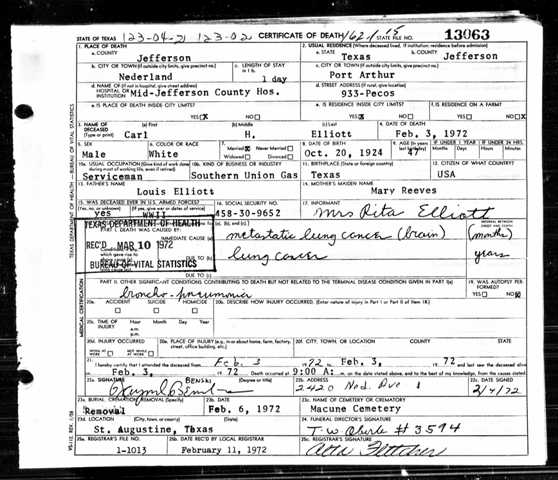 STATE OF TEXAS 123-04-21 123-02 CERTIFICATE OF DEATH STATE FILE NO. 13063
1. PLACE OF DEATH 2. USUAL RESIDENCE (Where deceased lived. If institution: residence before admission)
a. COUNTY Jefferson a. STATE Texas b. COUNTY Jefferson
b. CITY OR TOWN (If outside city limits, give precinct no.) c. LENGTH OF STAY in 1 b. c. CITY OR TOWN (If outside city limits, give precinct no.)
Nederland 1 day Port Arthur
d. NAME OF (If not in hospital, give street address) HOSPITAL OR INSTITUTION Mid-Jefferson County Hos. d. STREET ADDRESS 933-Pecos
e. IS PLACE OF DEATH INSIDE CITY LIMITS? e. IS RESIDENCE INSIDE CITY LIMITS? f. IS RESIDENCE ON A FARM?
YES X NO YES X NO YES NO X
3. NAME OF DECEASED (Type or print) (a) First (b) Middle (c) Last 4. DATE OF DEATH
Carl H. Elliott Feb. 3, 1972
5. SEX 6. COLOR OR RACE 7. Married X Never Married Widowed Divorced 8. DATE OF BIRTH 9. AGE
Male White Oct. 20, 1924 47
10a. USUAL OCCUPATION 10b. KIND OF BUSINESS OR INDUSTRY 11. BIRTHPLACE (State or foreign country) 12. CITIZEN OF WHAT COUNTRY?
Serviceman Southern Union Gas Texas USA
13. FATHER'S NAME 14. MOTHER'S MAIDEN NAME
Louis Elliott Mary Reeves
15. WAS DECEASED EVER IN U.S. ARMED FORCES? 16. SOCIAL SECURITY NO. 17. INFORMANT
yes WWII 458-30-9652 Mrs Rita Elliott
TEXAS DEPARTMENT OF HEALTH
REC'D MAR 10 1972
BUREAU OF VITAL STATISTICS
IMMEDIATE CAUSE (a) metastatic lung cancer (brain) (months)
DUE TO (b) lung cancer years
DUE TO (c)
PART II. OTHER SIGNIFICANT CONDITIONS CONTRIBUTING TO DEATH BUT NOT RELATED TO THE TERMINAL DISEASE CONDITION GIVEN IN PART I(a) 19. WAS AUTOPSY PERFORMED?
broncho-pneumonia YES NO
20a. ACCIDENT SUICIDE HOMICIDE 20b. DESCRIBE HOW INJURY OCCURRED. (Enter nature of injury in Part I or Part II of Item 18.)
20c. TIME OF INJURY Hour Month Day Year
a.m.
p.m.
20d. INJURY OCCURRED 20e. PLACE OF INJURY (e.g., in or about home, farm, factory, street, office building, etc.) 20f. CITY, TOWN, OR LOCATION COUNTY STATE
WHILE AT WORK NOT WHILE AT WORK
21. I hereby certify that I attended the deceased from Feb 3 1972 to Feb. 3, 1972 and last saw the deceased alive
on Feb. 3, 1972 Death occurred at 9:00 A. m. on the date stated above, and to the best of my knowledge, from the causes stated.
22a. SIGNATURE (Degree or title) 22b. ADDRESS 22c. DATE SIGNED
2420
23a. BURIAL, CREMATION, REMOVAL (Specify) 23b. DATE 23c. NAME OF CEMETERY OR CREMATORY
Removal Feb. 6, 1972 Macune Cemetery
23d. LOCATION (City, town, or county) (State) 24. FUNERAL DIRECTOR'S SIGNATURE
St. Augustine, Texas T. W. Oberle # 3594
25a. REGISTRAR'S FILE NO. 25b. DATE REC'D BY LOCAL REGISTRAR 25c. REGISTRAR'S SIGNATURE
1-1013 February 11, 1972